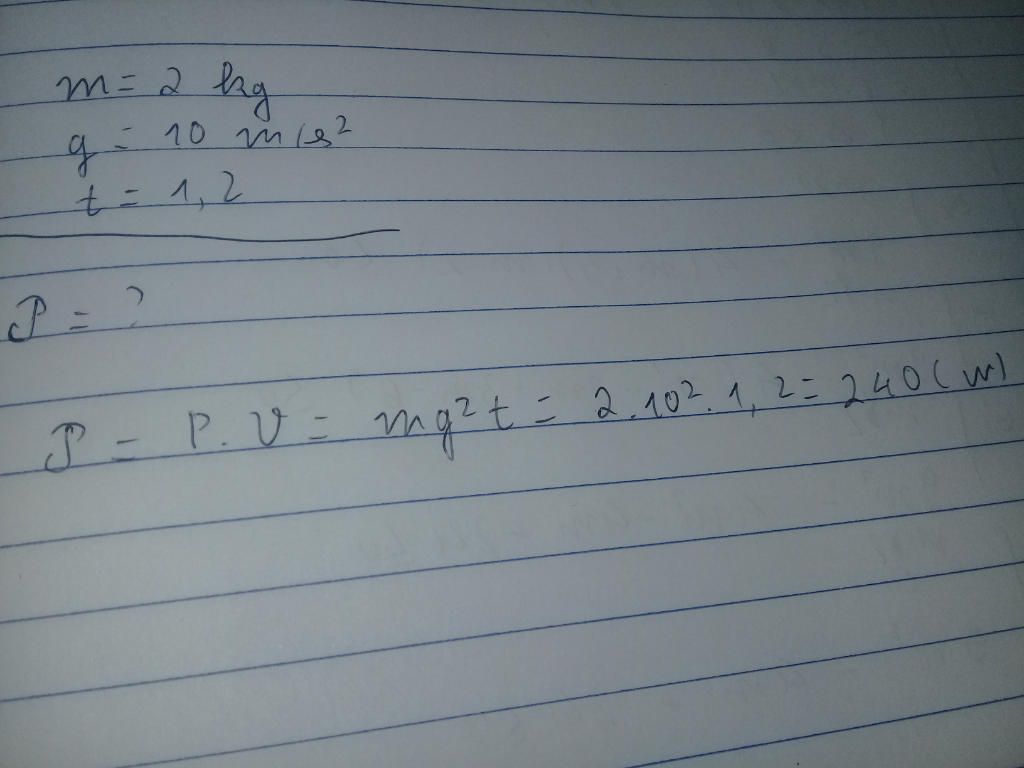 m = 2 kg
g = 10 m/s²
t = 1,2
P = ?
P = P.v = mg²t = 2.10².1,2 = 240 (w)